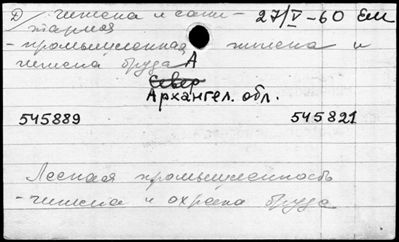 Д) гигиена и сани- 27/V-60 Еш
тария
- промышленная гигиена и
гигиена труда А
Север
Архангел. обл.
545889 545821
Лесная промышленность
- гигиена и охрана труда